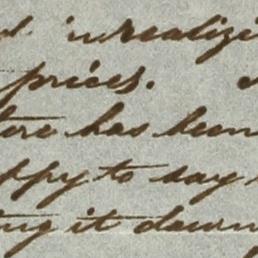 in realizi
prices.
ore has been
ppy to say
ing it down